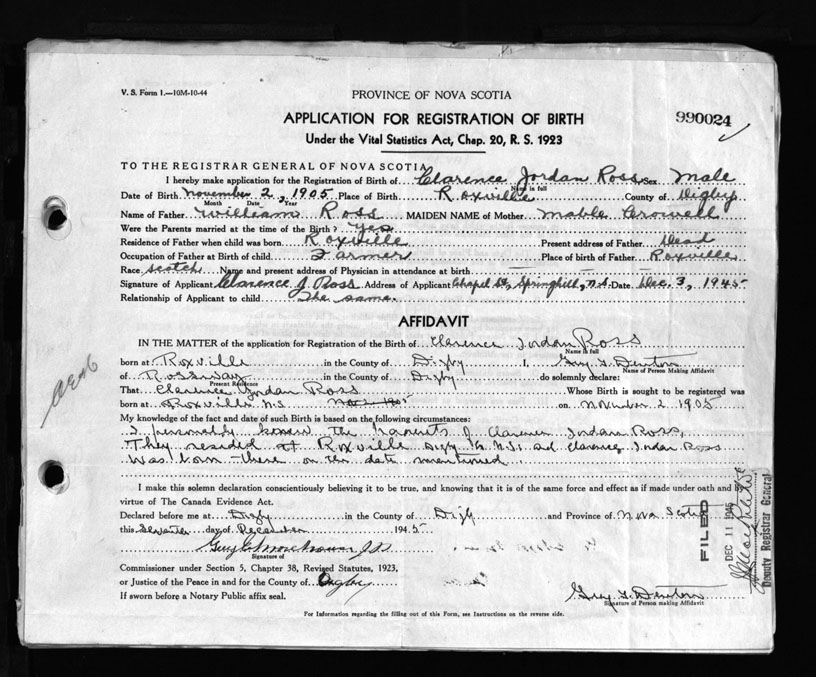 V. S. Form 1.—10M-10-44
PROVINCE OF NOVA SCOTIA
APPLICATION FOR REGISTRATION OF BIRTH
990024
Under the Vital Statistics Act, Chap. 20, R. S. 1923
TO THE REGISTRAR GENERAL OF NOVA SCOTIA
I hereby make application for the Registration of Birth of Clarence Jordan Ross Sex Male
Name in full
Date of Birth November 2, 1905 Place of Birth Roxville County of Digby
Month Date Year
Name of Father William Ross MAIDEN NAME of Mother Mable Crowell
Were the Parents married at the time of the Birth? Yes
Residence of Father when child was born Roxville Present address of Father Dead
Occupation of Father at Birth of child Farmer Place of birth of Father Roxville
Race Scotch Name and present address of Physician in attendance at birth
Signature of Applicant Clarence J Ross Address of Applicant Chapel St, Springhill, N.S. Date Dec. 3, 1945
Relationship of Applicant to child The same.
AFFIDAVIT
IN THE MATTER of the application for Registration of the Birth of Clarence Jordan Ross
Name in full
born at Roxville in the County of Digby I, Guy Denton
Name of Person Making Affidavit
of Rossway in the County of Digby do solemnly declare:
Present Residence
That Clarence Jordan Ross Whose Birth is sought to be registered was
born at Roxville N.S. on November 2 1905
My knowledge of the fact and date of such Birth is based on the following circumstances:
I personally knew the parents of Clarence Jordan Ross,
They resided at Roxville Digby Co N.S. and Clarence Jordan Ross
was born there on the date mentioned.
I make this solemn declaration conscientiously believing it to be true, and knowing that it is of the same force and effect as if made under oath and by
virtue of The Canada Evidence Act.
Declared before me at Digby in the County of Digby and Province of Nova Scotia
this day of December 1945
Guy
Signature of
Commissioner under Section 5, Chapter 38, Revised Statutes, 1923,
or Justice of the Peace in and for the County of Digby
If sworn before a Notary Public affix seal.
Guy Denton
Signature of Person making Affidavit
For Information regarding the filling out of this Form, see Instructions on the reverse side.
FILED
DEC 11 1945
Deputy Registrar General